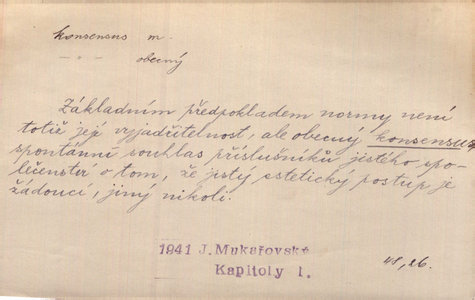 konsensus m.
-"- obecný
Základním předpokladem normy není
totiž její vyjadřitelnost, ale obecný konsensus,
spontánní souhlas příslušníků jistého spo-
lečenství o tom, že jistý estetický postup je
žádoucí, jiný nikoli.
1941 J. Mukařovský
Kapitoly I.
48, 26.